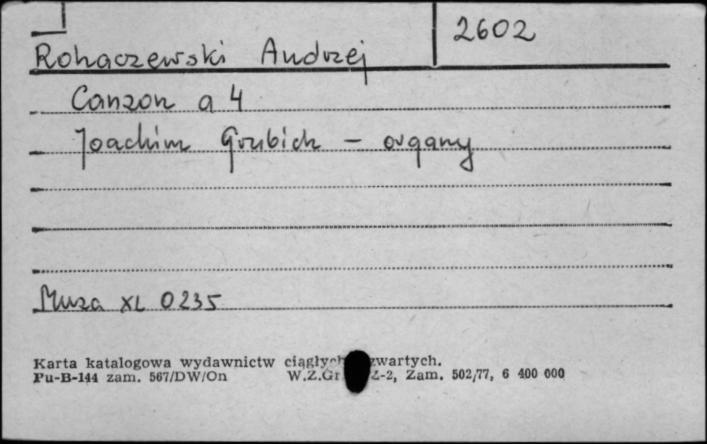 2602
Rohaczewski Andrzej
Canzon a 4
Joachim Grubich - organy
Muza XL 0235
Karta katalogowa wydawnictw ciągłych zwartych.
Pu-B-144 zam. 567/DW/On W.Z.Gr Z-2, Zam. 502/77, 6 400 000